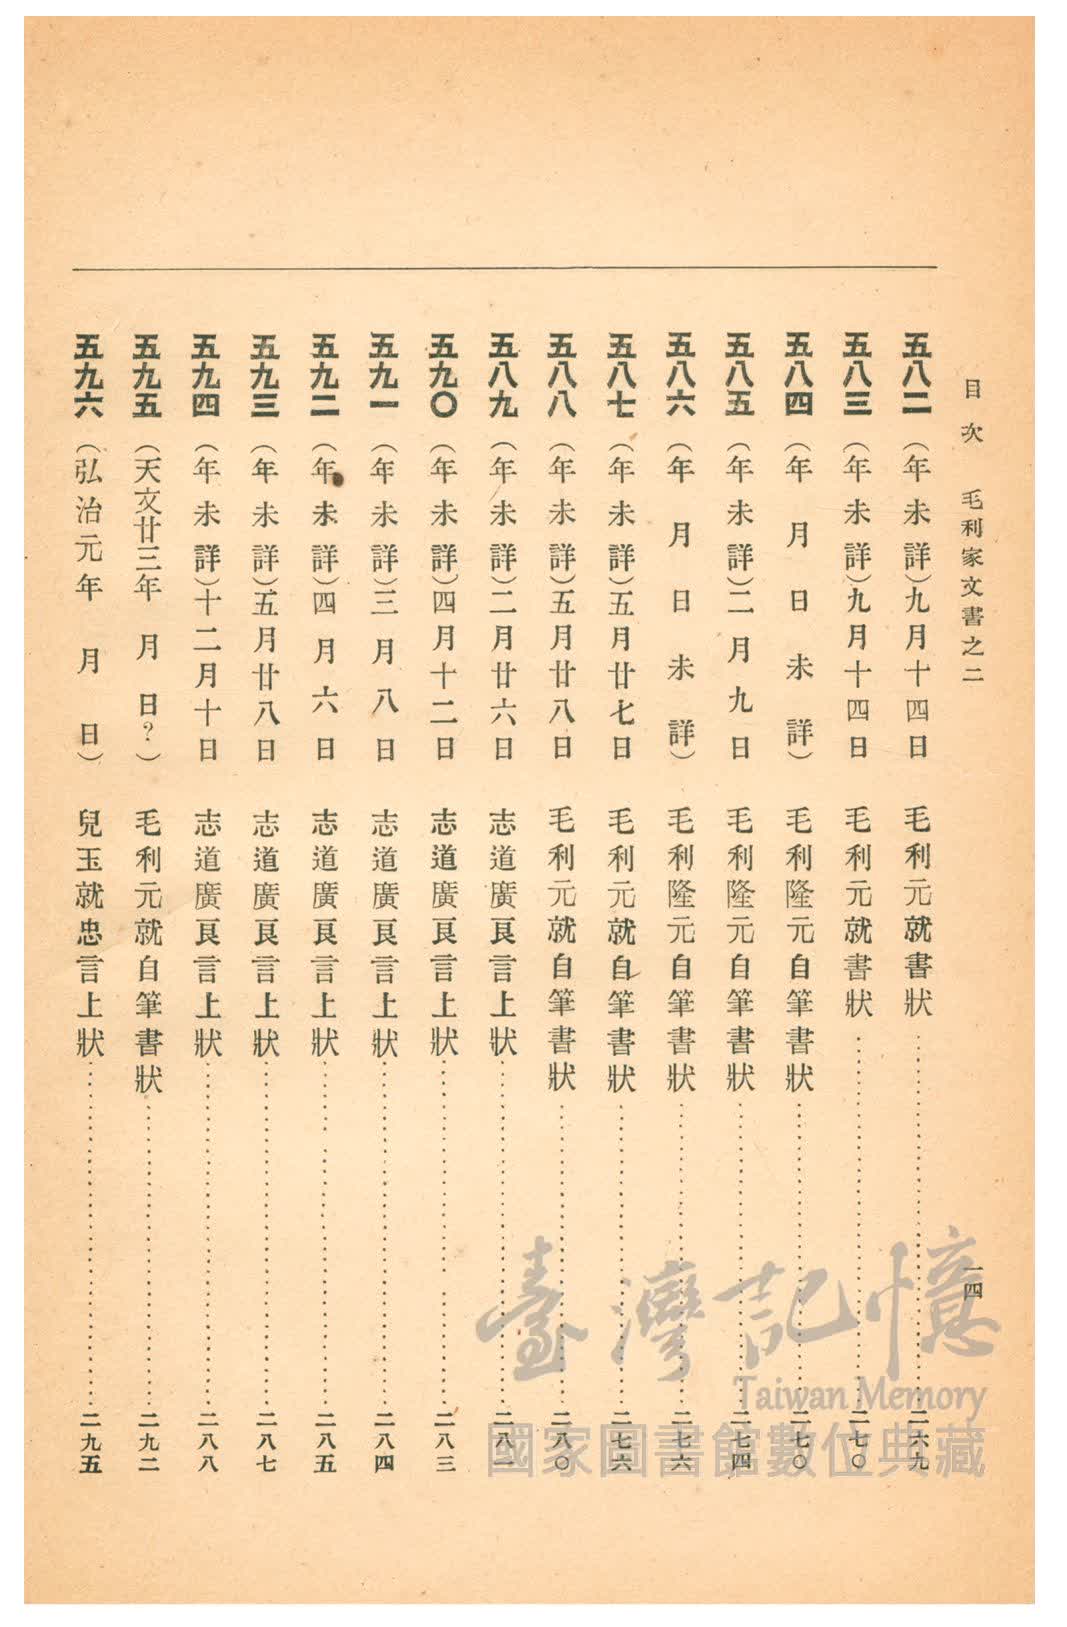 目次 毛利家文書之二 一四
五八二 (年未詳)九月十四日 毛利元就書狀 二六九
五八三 (年未詳)九月十四日 毛利元就書狀 二七〇
五八四 (年月日未詳) 毛利隆元自筆書狀 二七〇
五八五 (年未詳)二月九日 毛利隆元自筆書狀 二七四
五八六 (年月日未詳) 毛利隆元自筆書狀 二七六
五八七 (年未詳)五月廿七日 毛利元就自筆書狀 二七六
五八八 (年未詳)五月廿八日 毛利元就自筆書狀 二八〇
五八九 (年未詳)二月廿六日 志道廣良言上狀 二八一
五九〇 (年未詳)四月十二日 志道廣良言上狀 二八三
五九一 (年未詳)三月八日 志道廣良言上狀 二八四
五九二 (年未詳)四月六日 志道廣良言上狀 二八五
五九三 (年未詳)五月廿八日 志道廣良言上狀 二八七
五九四 (年未詳)十二月十日 志道廣良言上狀 二八八
五九五 (天文廿三年 月 日?) 毛利元就自筆書狀 二九二
五九六 (弘治元年 月 日) 兒玉就忠言上狀 二九五
臺灣記憶
Taiwan Memory
國家圖書館數位典藏